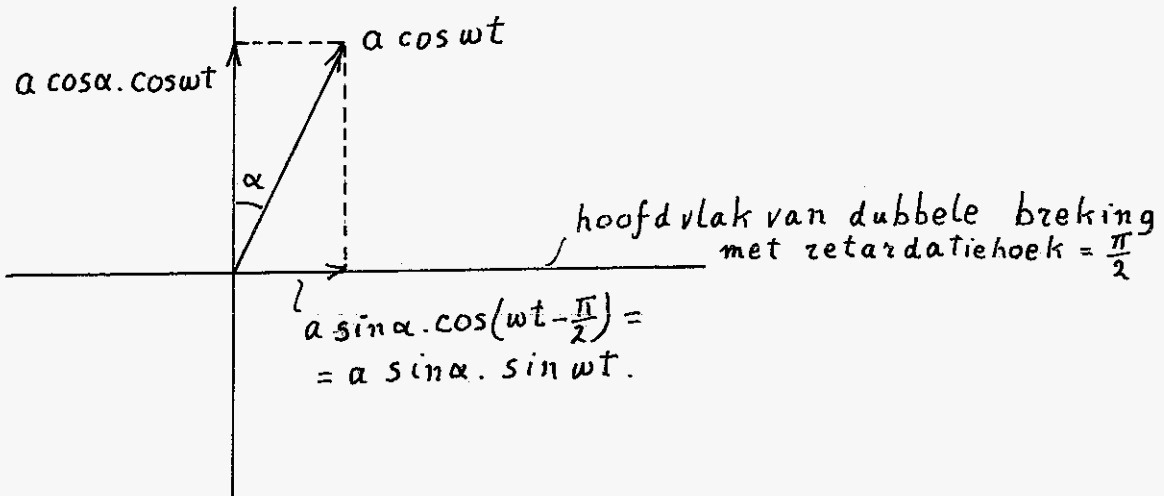 a cos ωt
a cosα. cosωt
α
hoofdvlak van dubbele breking
met retardatiehoek = π/2
a sinα. cos(ωt-π/2) =
= a sinα. sin ωt.